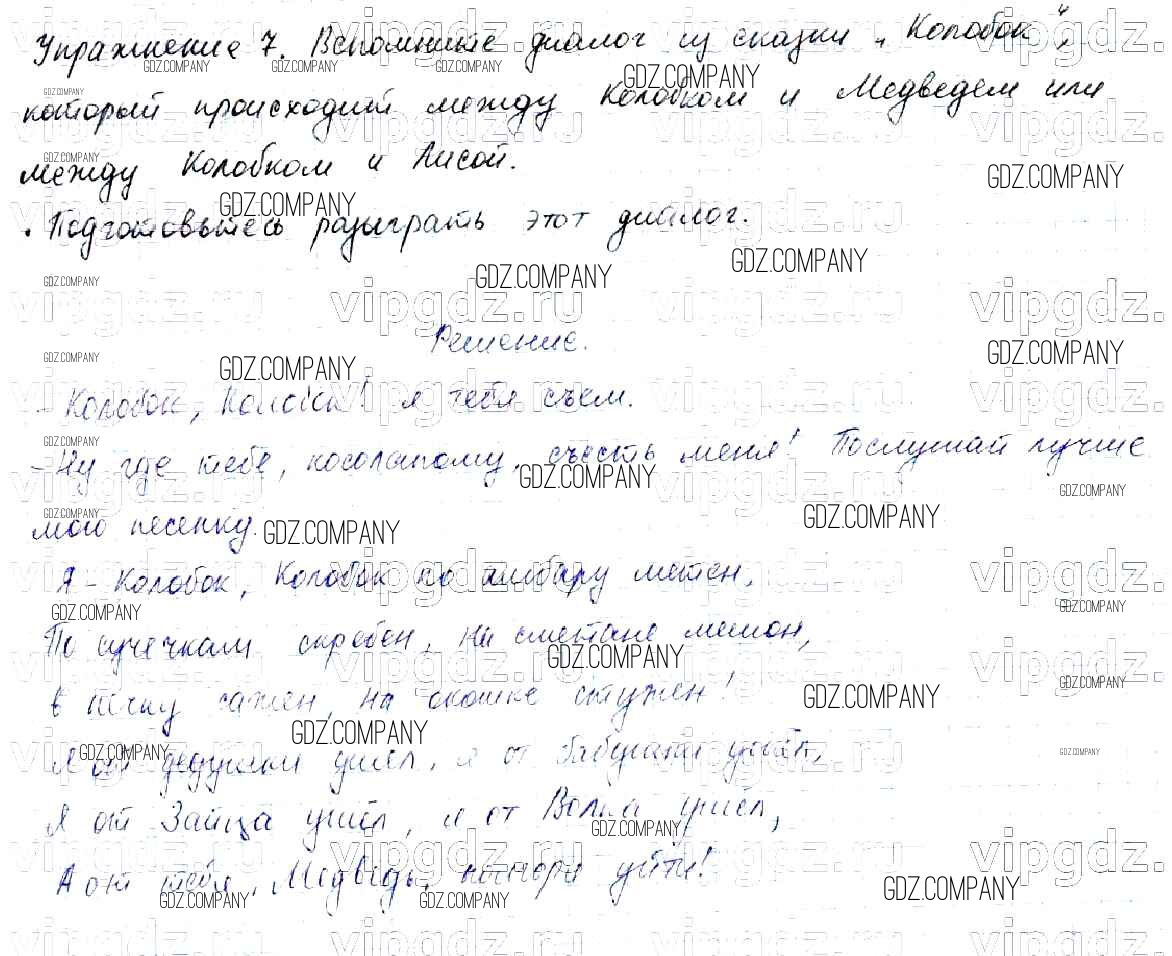 Упражнение 7. Вспомните диалог из сказки „Колобок“,
который происходит между Колобком и Медведем или
между Колобком и Лисой.
• Подготовьтесь разыграть этот диалог.
Решение.
- Колобок, Колобок! я тебя съем.
- Ну где тебе, косолапому, съесть меня! Послушай лучше
мою песенку.
Я - Колобок, Колобок по амбару метен,
По сусечкам скребен, на сметане мешон,
в печку сажен, на окошке стужен!
Я от дедушки ушёл, я от бабушки ушёл,
Я от Зайца ушёл, я от Волка ушёл,
А от тебя, Медведь, уйти!
GDZ.COMPANY
vipgdz.ru